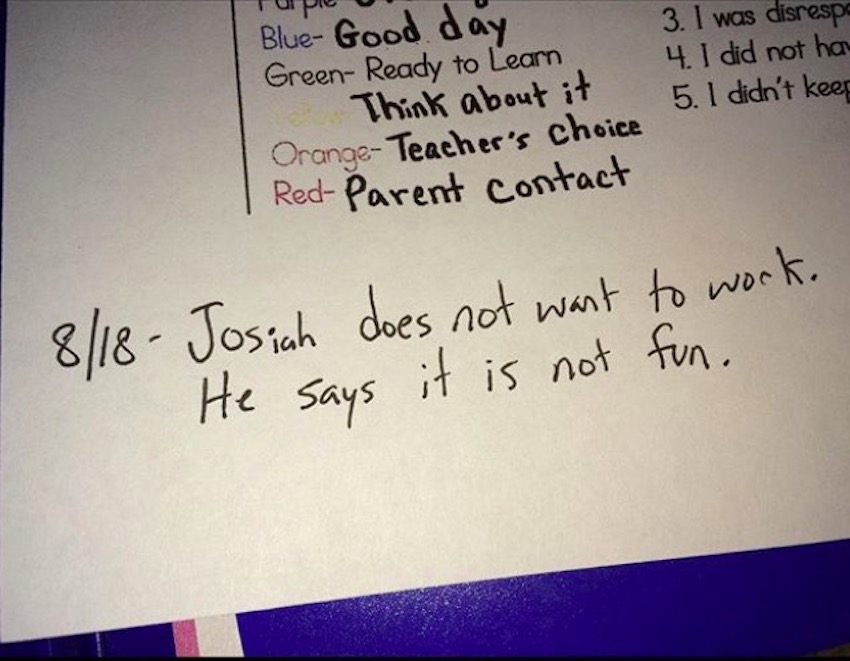 Blue- Good day
Green- Ready to Learn
Yellow- Think about it
Orange- Teacher's Choice
Red- Parent Contact
3. I was
4. I did not
5. I didn't
8/18- Josiah does not want to work.
He says it is not fun.